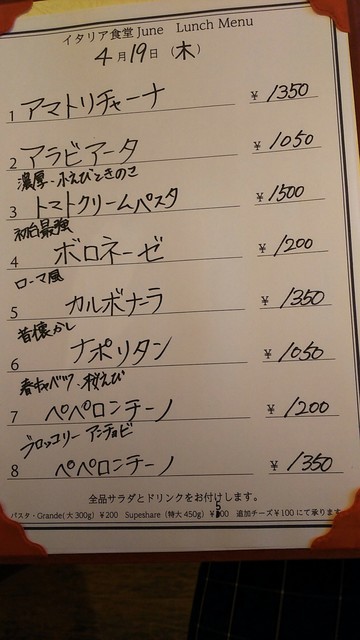 イタリア食堂 June　Lunch Menu
4月19日（木）
1 アマトリチャーナ ¥ 1350
2 アラビアータ ¥ 1050
濃厚・小えびときのこ
3 トマトクリームパスタ ¥ 1500
初台最強
4 ボロネーゼ ¥ 1200
ローマ風
5 カルボナーラ ¥ 1350
昔懐かし
6 ナポリタン ¥ 1050
春キャベツ・桜えび
7 ペペロンチーノ ¥ 1200
ブロッコリー アンチョビ
8 ペペロンチーノ ¥ 1350
全品サラダとドリンクをお付けします。
パスタ・Grande(大 300g) ¥200　Supeshare（特大 450g）¥500　追加チーズ¥100 にて承ります